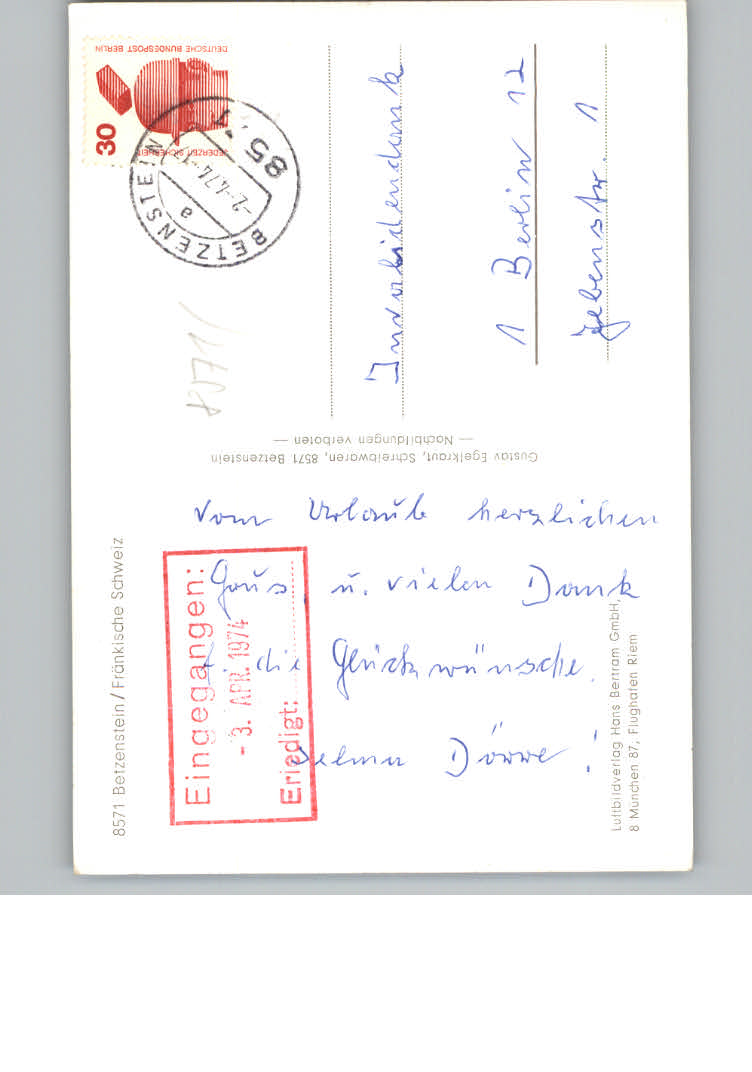 Vom Urlaub herzlichen
Gruss u. vielen Dank
f. die Glückwünsche.
Selma Dörre!
Invalidendank
1 Berlin 12
Jebenstr. 1
8571 Betzenstein / Fränkische Schweiz
Gustav Egelkraut, Schreibwaren, 8571 Betzenstein
— Nachbildungen verboten —
Luftbildverlag Hans Bertram GmbH,
8 München 87, Flughafen Riem
Eingegangen:
- 3. APR. 1974
Erledigt:
DEUTSCHE BUNDESPOST BERLIN
JEDERZEIT SICHERHEIT
30
8571
BETZENSTEIN
a
-2.-4.74-